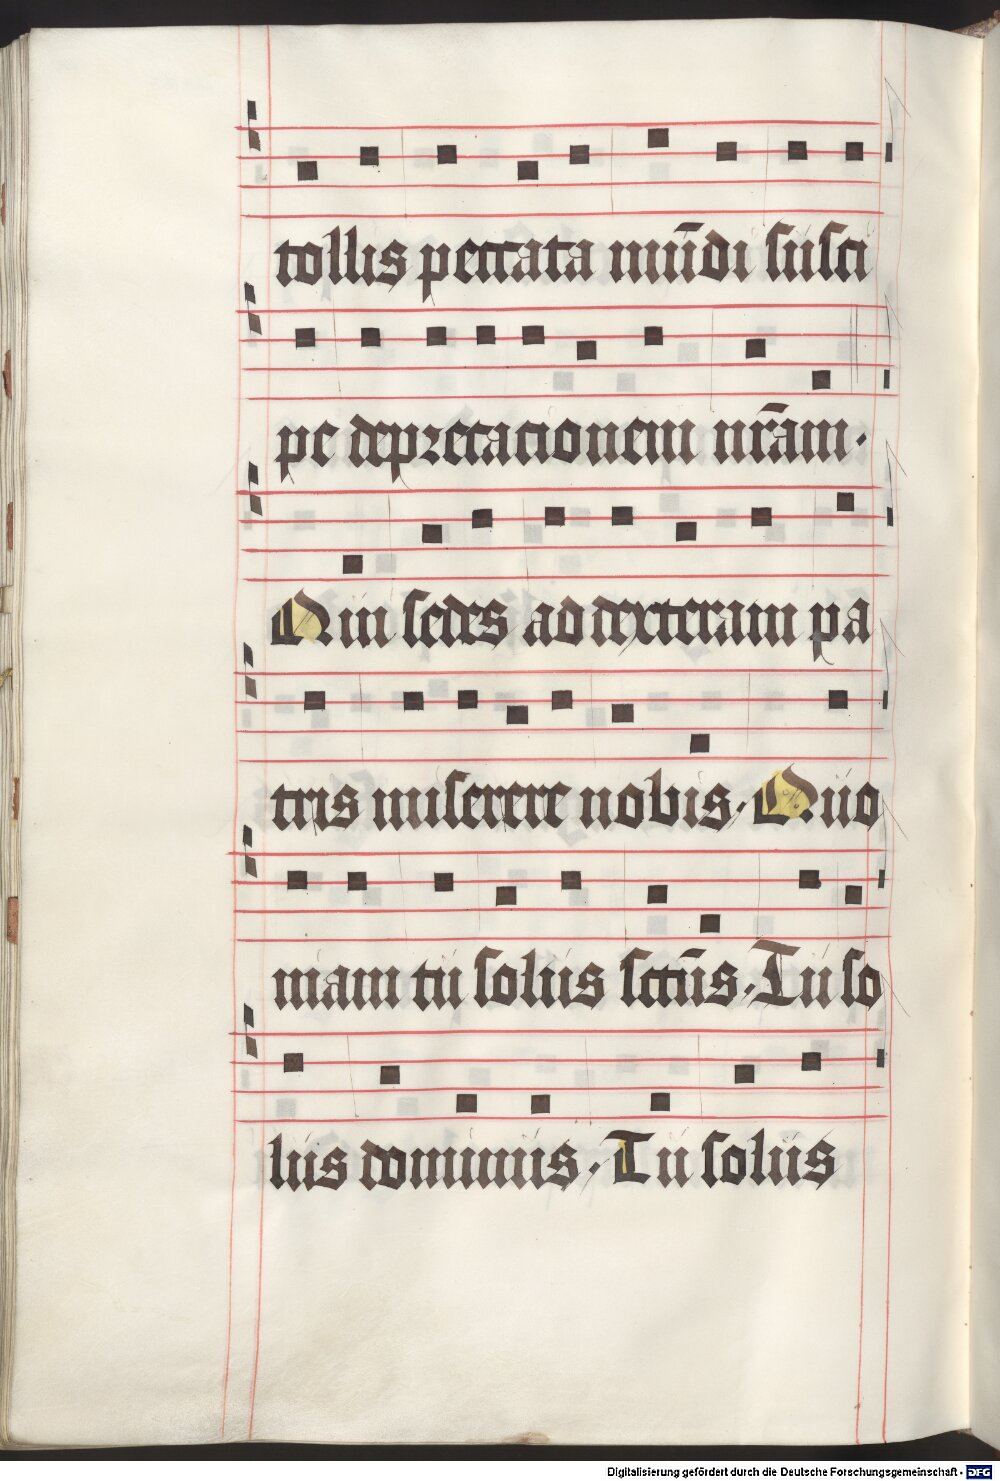 tollis peccata mūdi susci
pe deprecacionem nr̄am·
Qui sedes ad dexteram pa
tris miserere nobis· Quo
niam tu solus sctūs· Tu so
lus dominus· Tu solus
Digitalisierung gefördert durch die Deutsche Forschungsgemeinschaft - DFG